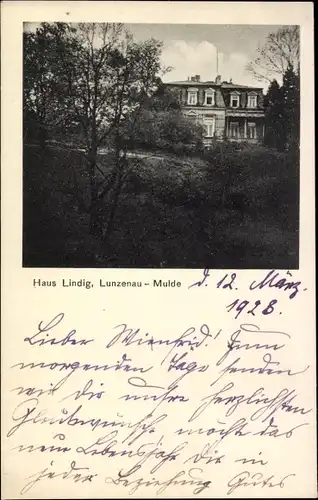 Haus Lindig, Lunzenau - Mulde
d. 12. März.
1928.
Lieber Wienfrid! Zum
morgenden Tage senden
wir Dir unsre herzlichsten
Glückwünsche möcht das
neue Lebensjahr Dir in
jeder Beziehung Gutes